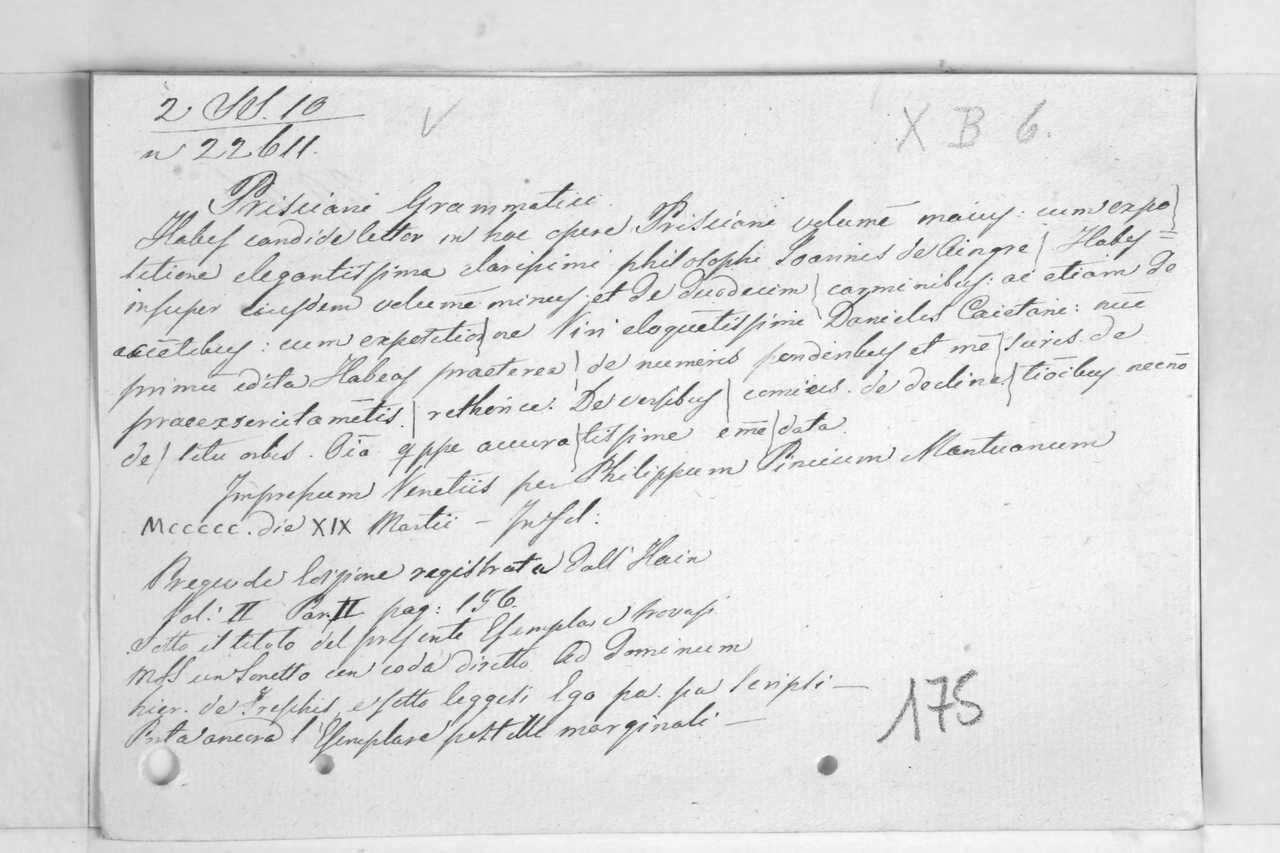 2 SS. 10
V
X B 6.
n 22611.
Prisciani Grammatici.
Habes candide lector in hoc opere Prisciani volumē maius: cum expo}
sitione elegantissima clarissimi philosophi Joannis de Aingre} Habes=
insuper eiusdem volumē minus: et de duodecim} carminibus: ac etiam de
accētibus: cum expositio}ne Viri eloquētissimi Danielis Caietani: nūc
primū edita Habeas praeterea} de numeris ponderibus et mē}suris. de
praeexercitamētis.} rethorice. De versibus} comicis. de declina}tiōibus necnō
de} situ orbis. Oīa qppe accura}tissime emē}data.
Impressum Venetiis per Philippum Pincium Mantuanum
MCCCCC. die XIX Martii – In fol:
Pregevole Edizione registrata dall' Hain
Vol: II Par. II pag: 156.
Sotto il titolo del presente Esemplare trovasi
MSS un Sonetto con coda diretto Ad Dominum
hier. de e sotto leggesi Ego pa. pa Scripsi –
Porta ancora l'Esemplare postille marginali –
175